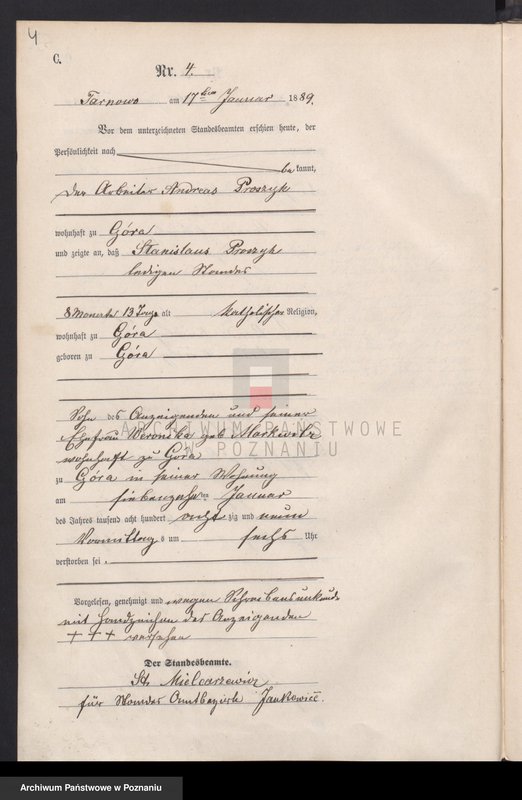 4
C.
Nr. 4.
Tarnowo am 17ten Januar 1889.
Vor dem unterzeichneten Standesbeamten erschien heute, der
Persönlichkeit nach
be kannt,
der Arbeiter Andreas Proszyk
wohnhaft zu Góra
und zeigte an, daß Stanislaus Proszyk
ledigen Standes
8 Monate 13 Tage alt katholischer Religion,
wohnhaft zu Góra
geboren zu Góra
Sohn des Anzeigenden und seiner
Ehefrau Veronika geb Markwitz
wohnhaft zu Góra
ARCHIWUM PAŃSTWOWE
W POZNANIU
zu Góra in seiner Wohnung
am siebenzehnten Januar
des Jahres tausend acht hundert acht zig und neun
Vormittags um sechs Uhr
verstorben sei.
Vorgelesen, genehmigt und wegen Schreibensunkunde
mit Handzeichen des Anzeigenden
+++ versehen
Der Standesbeamte.
St. Mielcarzewicz
für Standes Amtbezirk
Archiwum Państwowe w Poznaniu